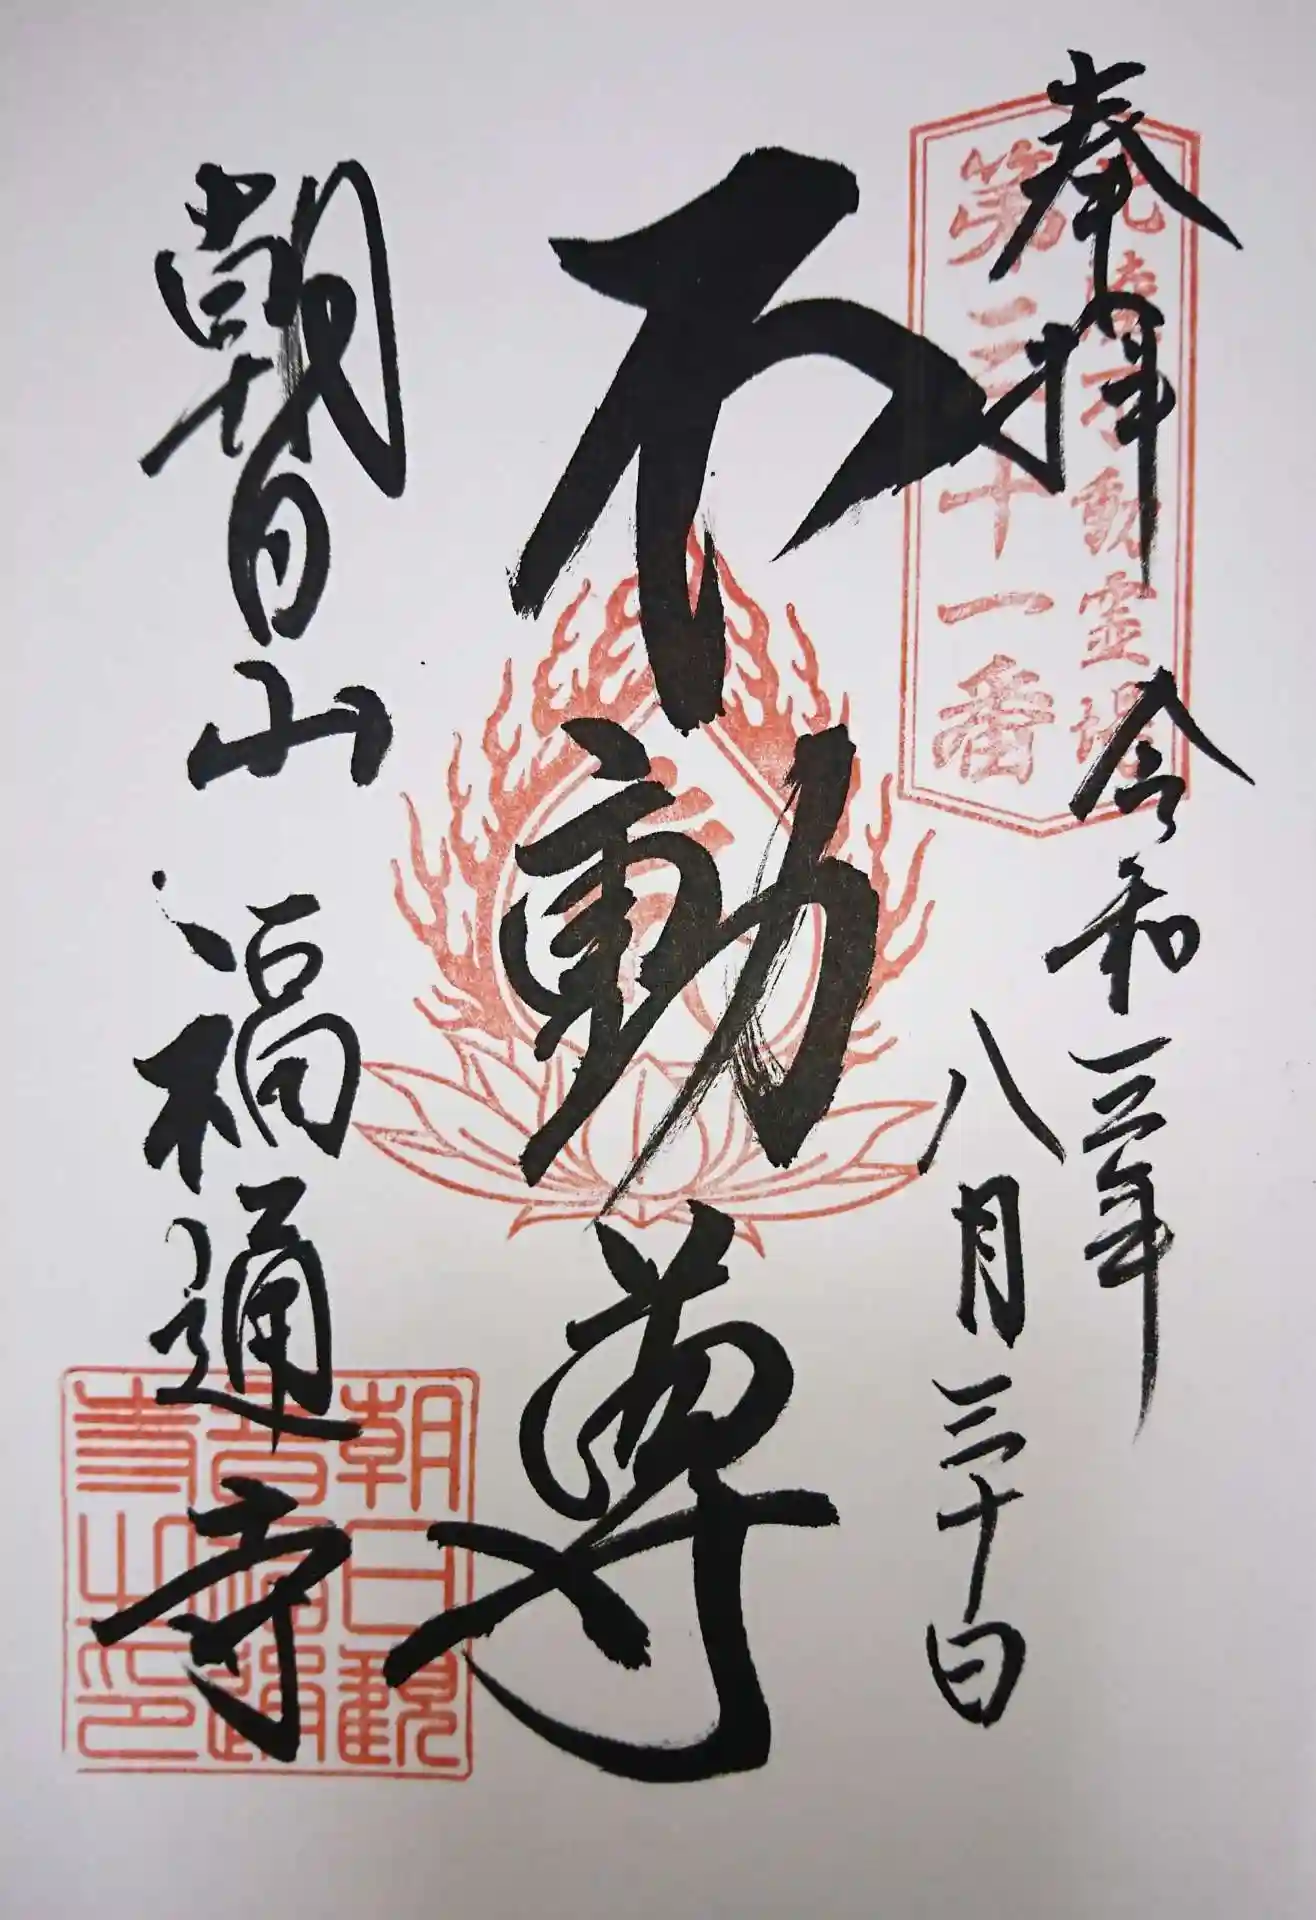 奉拝
北陸不動霊場
第三十一番
令和三年
八月三十日
不動尊
朝日山 福通寺
朝日観
音福通
寺之印